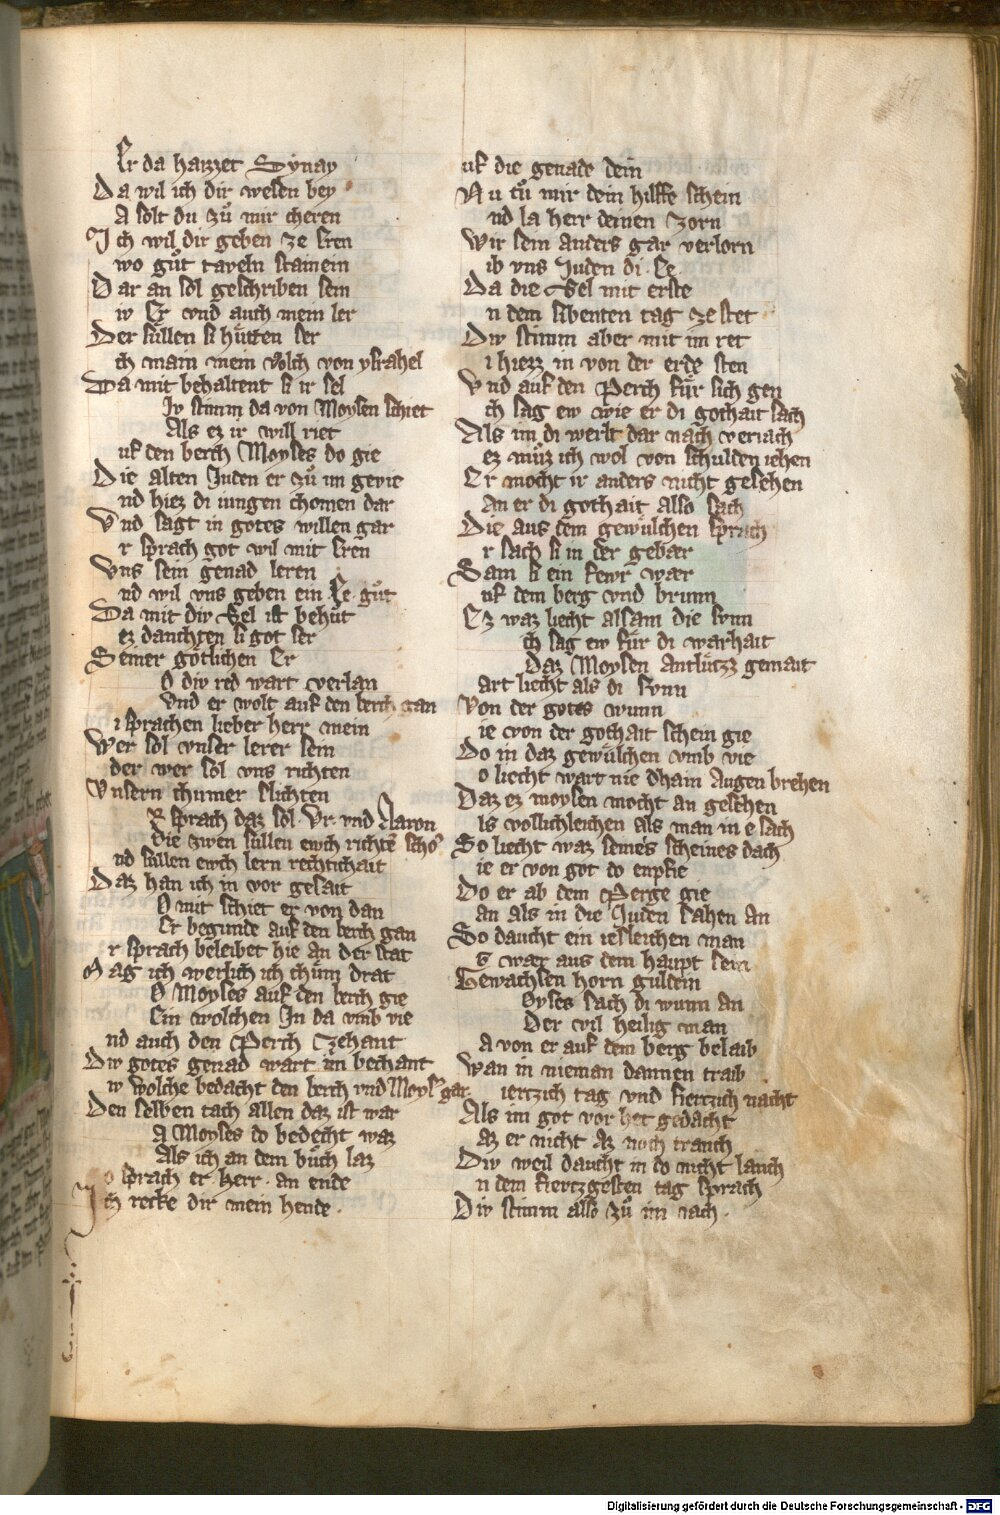 Er da haizzet Synay
Da wil ich dir wesen bey
A solt du zů mir cheren
Ich wil dir geben ze eren
wo gůt taveln stainein
Dar an sol geschriben sein
iv Er vnd auch mein ler
Der süllen si hütten ser
ch main mein volch von ysrahel
Da mit behaltent si ir sel
Iv stimm da von Moysen schiet
Als ez ir will riet
uf den berch Moyses do gie
Die alten Juden er zů im gevie
nd hiez di iungen chomen dar
Vnd sagt in gotes willen gar
r sprach got wil mit eren
Vns sein genad leren
nd wil vns geben ein Ee gůt
Da mit div Sel ist behůt
ez dauchten si got ser
Seiner götlichen Er
O div red wart verlan
Vnd er wolt auf den berch gan
i sprachen lieber herr mein
Wer sol vnser lerer sein
der wer sol vns richten
Vnsern chumer slichten
R sprach daz sol Vr vnd Aaron
die zwen süllen ewch richtē scho
nd süllen ewch lern rechtichait
Daz han ich in vor gesait
O mit schiet er von dan
Er begunde auf den berch gan
r sprach beleibet hie an der stat
Mag ich werlich ich chüm drat
O Moyses auf den berch gie
Ein wolchen In da vmb vie
nd auch den Perch Zehant
Div gotes genad wart im bechant
iv wolche bedacht den berch vnd Moyses gar
Den selben tach allen daz ist war
A Moyses do bedecht waz
Als ich an dem bůch laz
o sprach er herr an ende
Ich recke dir mein hende
uf die genade dein
Nu tů mir dein hilffe schein
nd la herr deinen zorn
Wir sein anders gar verlorn
ib vns Juden di Ee
Da die Sel mit erste
n dem sibenten tag ze stet
Div stimm aber mit im ret
i hiezz in von der erde sten
Vnd auf den Perch für sich gen
ch sag ew wie er di gothait sach
Als im di werlt dar nach veriach
ez můz ich wol von schulden iehen
Er mocht ir anders nicht gesehen
An er di gothait also sach
Die aus dem gewülchen sprach
r sach si in der gebær
Sam si ein fewr wær
uf dem berg vnd brunn
Ez waz liecht alsam die sunn
ch sag ew für di warhait
Daz Moysen Antlützz gemait
art liecht als di sunn
Von der gotes wunn
ie von der gothait schein gie
Do in daz gewülchen vmb vie
o liecht wart nie dhain Augen brehen
Daz ez moysen mocht an gesehen
ls vollichleichen als man in e sach
So liecht waz seines scheines dach
ie er von got do enpfie
Do er ab dem Perge gie
an als in die Juden sahen an
So daucht ein iesleichen man
S wær aus dem haupt sein
Gewachsen horn guldein
Oyses sach di wunn an
Der vil heilig man
A von er auf dem berg belaib
Wan in nieman dannen traib
iertzich tag vnd fiertzich nacht
Als im got vor het gedacht
az er nicht Az noch tranch
Div weil daucht in do nicht lanch
n dem fiertzgesten tag sprach
Div stimm also zů im nach
Digitalisierung gefördert durch die Deutsche Forschungsgemeinschaft - DFG